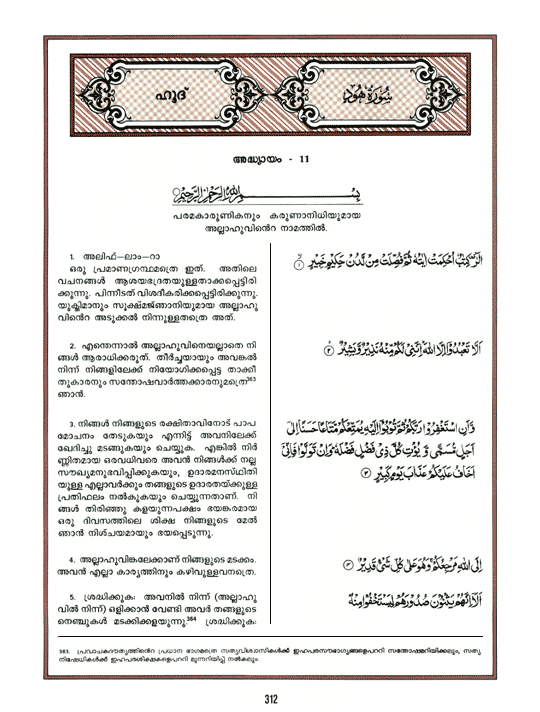 ഹൂദ്
سُورَةُ هُودٍ
അദ്ധ്യായം - 11
بِسْمِ اللهِ الرَّحْمٰنِ الرَّحِيْمِ
പരമകാരുണികനും കരുണാനിധിയുമായ
അല്ലാഹുവിൻെറ നാമത്തിൽ.
1. അലിഫ്—ലാം—റാ
ഒരു പ്രമാണഗ്രന്ഥമത്രെ ഇത്. അതിലെ
വചനങ്ങൾ ആശയഭദ്രതയുള്ളതാക്കപ്പെട്ടിരി
ക്കുന്നു. പിന്നീടത് വിശദീകരിക്കപ്പെട്ടിരിക്കുന്നു.
യുക്തിമാനും സൂക്ഷ്മജ്ഞാനിയുമായ അല്ലാഹു
വിൻെറ അടുക്കൽ നിന്നുള്ളതത്രെ അത്.
الٓرٰ كِتٰبٌ اُحْكِمَتْ اٰيٰتُهٗ ثُمَّ فُصِّلَتْ مِنْ لَّدُنْ حَكِيْمٍ خَبِيْرٍ ۝١
2. എന്തെന്നാൽ അല്ലാഹുവിനെയല്ലാതെ നി
ങ്ങൾ ആരാധിക്കരുത്. തീർച്ചയായും അവങ്കൽ
നിന്ന് നിങ്ങളിലേക്ക് നിയോഗിക്കപ്പെട്ട താക്കീ
തുകാരനും സന്തോഷവാർത്തക്കാരനുമത്രെ363
ഞാൻ.
اَلَّا تَعْبُدُوْٓا اِلَّا اللهَ اِنَّنِيْ لَكُمْ مِّنْهُ نَذِيْرٌ وَّبَشِيْرٌ ۝٢
3. നിങ്ങൾ നിങ്ങളുടെ രക്ഷിതാവിനോട് പാപ
മോചനം തേടുകയും എന്നിട്ട് അവനിലേക്ക്
ഖേദിച്ചു മടങ്ങുകയും ചെയ്യുക. എങ്കിൽ നിർ
ണ്ണിതമായ ഒരവധിവരെ അവൻ നിങ്ങൾക്ക് നല്ല
സൗഖ്യമനുഭവിപ്പിക്കുകയും, ഉദാരമനസ്ഥിതി
യുള്ള എല്ലാവർക്കും തങ്ങളുടെ ഉദാരതയ്ക്കുള്ള
പ്രതിഫലം നൽകുകയും ചെയ്യുന്നതാണ്. നി
ങ്ങൾ തിരിഞ്ഞു കളയുന്നപക്ഷം ഭയങ്കരമായ
ഒരു ദിവസത്തിലെ ശിക്ഷ നിങ്ങളുടെ മേൽ
ഞാൻ നിശ്ചയമായും ഭയപ്പെടുന്നു.
وَّاَنِ اسْتَغْفِرُوْا رَبَّكُمْ ثُمَّ تُوْبُوْٓا اِلَيْهِ يُمَتِّعْكُمْ مَّتَاعًا حَسَنًا اِلٰٓى
اَجَلٍ مُّسَمًّى وَّيُؤْتِ كُلَّ ذِيْ فَضْلٍ فَضْلَهٗ وَاِنْ تَوَلَّوْا فَاِنِّيْٓ
اَخَافُ عَلَيْكُمْ عَذَابَ يَوْمٍ كَبِيْرٍ ۝٣
4. അല്ലാഹുവിങ്കലേക്കാണ് നിങ്ങളുടെ മടക്കം.
അവൻ എല്ലാ കാര്യത്തിനും കഴിവുള്ളവനത്രെ.
اِلَى اللهِ مَرْجِعُكُمْ وَهُوَ عَلٰى كُلِّ شَيْءٍ قَدِيْرٌ ۝٤
5. ശ്രദ്ധിക്കുക: അവനിൽ നിന്ന് (അല്ലാഹു
വിൽ നിന്ന്) ഒളിക്കാൻ വേണ്ടി അവർ തങ്ങളുടെ
നെഞ്ചുകൾ മടക്കിക്കളയുന്നു.364 ശ്രദ്ധിക്കുക:
اَلَآ اِنَّهُمْ يَثْنُوْنَ صُدُوْرَهُمْ لِيَسْتَخْفُوْا مِنْهُ
363. പ്രവാചകദൗത്യത്തിൻെറ പ്രധാന ഭാഗമത്രെ സത്യവിശ്വാസികൾക്ക് ഇഹപരസൗഭാഗ്യങ്ങളെപററി സന്തോഷമറിയിക്കലും, സത്യ
നിഷേധികൾക്ക് ഇഹപരശിക്ഷകളെപററി മുന്നറിയിപ്പ് നൽകലും.
312